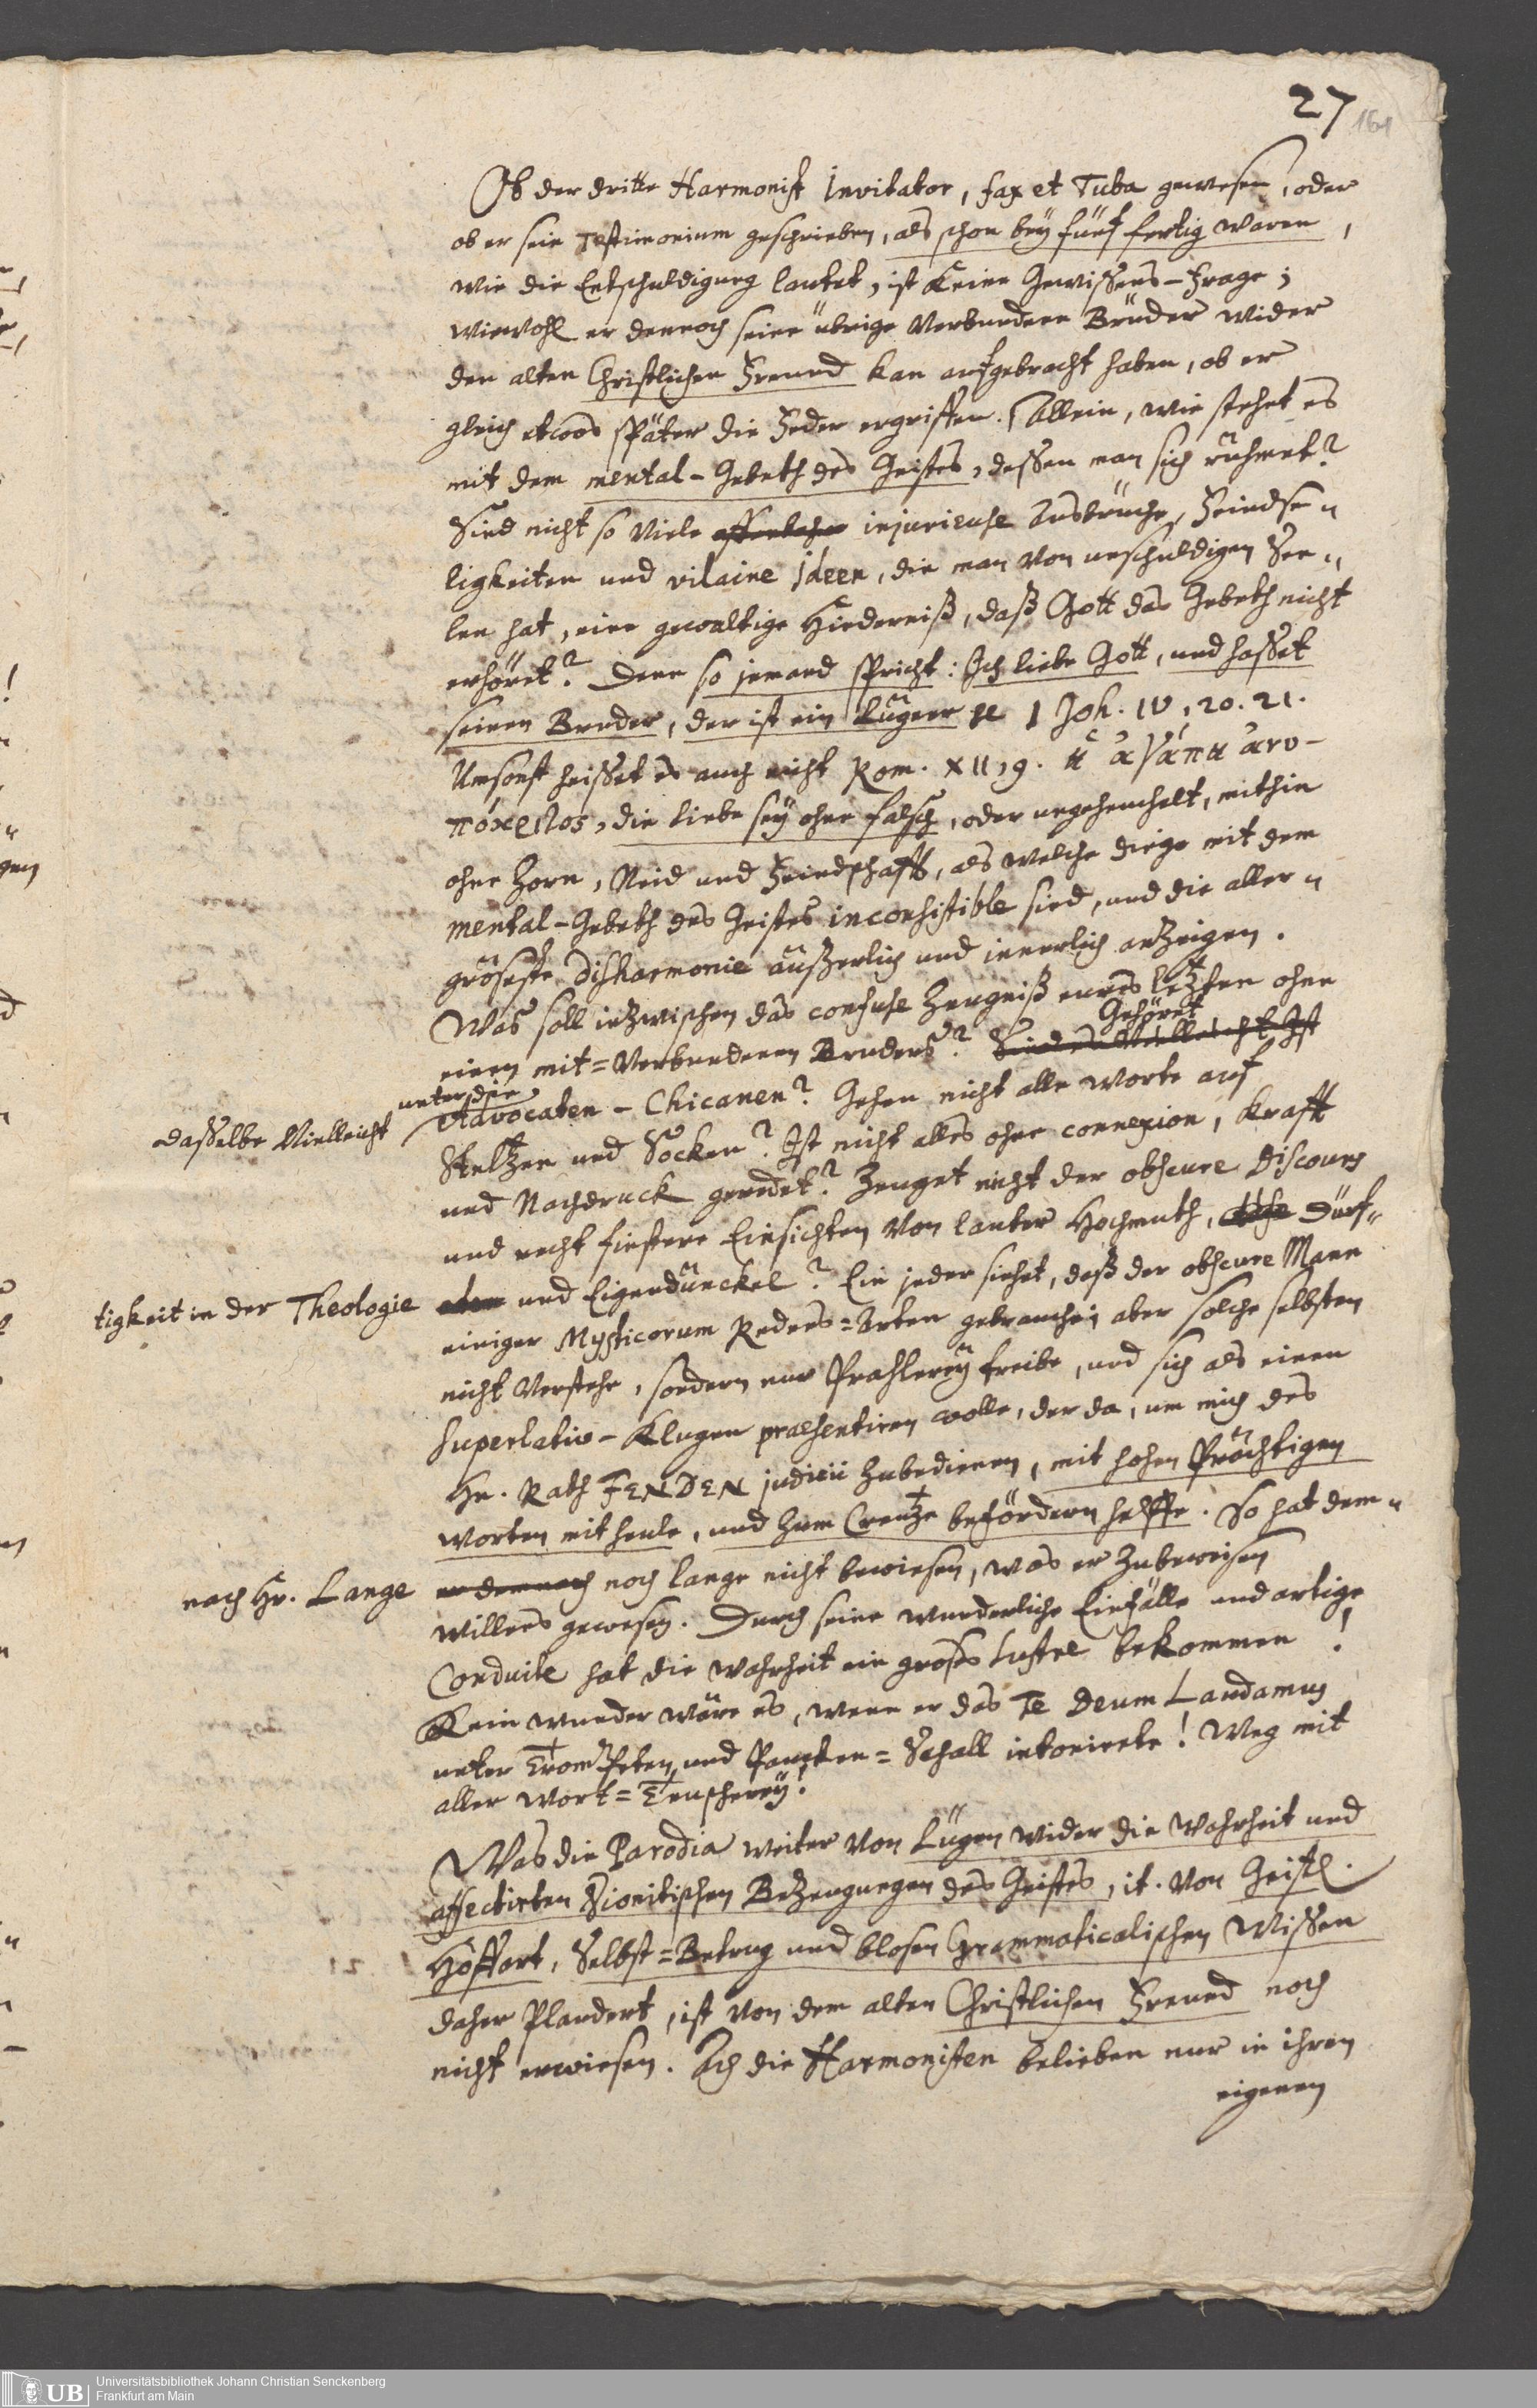 27
164
Ob der dritte Harmonist Invitator, fax et Tuba gewesen, oder
ob er sein Testimonium geschrieben, als schon bey fünf fertig waren,
wie die Entschuldigung lautet, ist keine Gewissens-Frage;
wiewohl er dennoch seine übrige Verbundene Brüder wider
den alten Christlichen Freund kan aufgebracht haben, ob er
gleich etwas später die Feder ergriffen. Allein, wie stehet es
mit dem mental-Gebeth des Geistes, dessen man sich rühmet?
Sind nicht so viele injurieuse Ausbrüche, Feindse-
ligkeiten und vilaine Ideen, die man von unschuldigen See-
len hat, eine gewaltige Hinderniß, daß Gott das Gebeth nicht
erhöret? Denn so jemand spricht: Ich liebe Gott, und hasset
seinen Bruder, der ist ein Lügner 1 Joh. IV, 20. 21.
Umsonst heisset es auch nicht Rom. XII, 9. ἡ ἀγάπη ἀνυ-
πόκριτος, die Liebe sey ohne falsch, oder ungeheuchelt, mithin
ohne Zorn, Neid und Feindschafft, als welche dinge mit dem
mental-Gebeth des Geistes inconsistible sind, und die aller-
gröseste Disharmonie äußerlich und innerlich anzeigen.
Was soll inzwischen das confuse Zeugniß eures letzten ohne
einen mit-Verbundenen Bruders? Gehöret
dasselbe Vielleicht unter die Advocaten-Chicanen? Gehen nicht alle Worte auf
Steltzen und Socken? Ist nicht alles ohne connexion, Krafft
und Nachdruck geredet? Zeuget nicht der obscure Discours
und recht finstere Einsichten von lauter Hochmuth, Dürf-
tigkeit in der Theologie und Eigendünckel? Ein jeder siehet, daß der obscure Mann
einiger Mysticorum Redens-Arten gebrauche; aber solche selbsten
nicht verstehe, sondern nur Prahlerey treibe, und sich als einen
superlativ-Klugen praesentiren wolle, der da, um mich des
Hn. Rath FENDEN judicii zubedienen, mit hohen Prächtigen
Worten mit heule, und zum Creutze befördern helffe. So hat dem-
nach Hr. Lange noch lange nicht bewiesen, was er zubeweisen
willens gewesen. Durch seine wunderliche Einfälle und artige
Conduite hat die Wahrheit ein groses Lustre bekommen!
Kein Wunder wäre es, wenn er das Te Deum Laudamus
unter Trompeten und Paucken-Schall intonirete! Weg mit
aller Wort-Teuscherey!
Was die Parodia weiter von Lügen wider die Wahrheit und
affectirten Zionitischen Bezeugungen des Geistes, it. von Geistl.
Hoffart, Selbst-Betrug und blosen Grammaticalischen Wissen
daher Plaudert, ist von dem alten Christlichen Freund noch
nicht erwiesen. Ach die Harmonisten belieben nur in ihren
eigenen
Universitätsbibliothek Johann Christian Senckenberg
Frankfurt am Main
UB